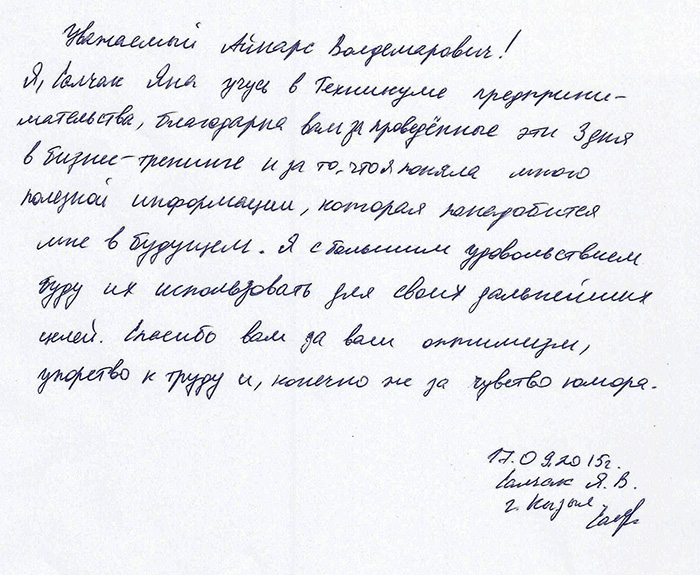 Уважаемый Аймарс Волдемарович!
Я, Салчак Яна учусь в Техникуме предприни-
мательства, благодарна вам за проведённые эти 3 дня
в бизнес-тренинге и за то, что я поняла много
полезной информации, которая понадобится
мне в будущем. Я с большим удовольствием
буду их использовать для своих дальнейших
целей. Спасибо вам за ваш оптимизм,
упорство к труду и, конечно же за чувство юмора.
17.09.2015г.
Салчак Я.В.
г. Кызыл